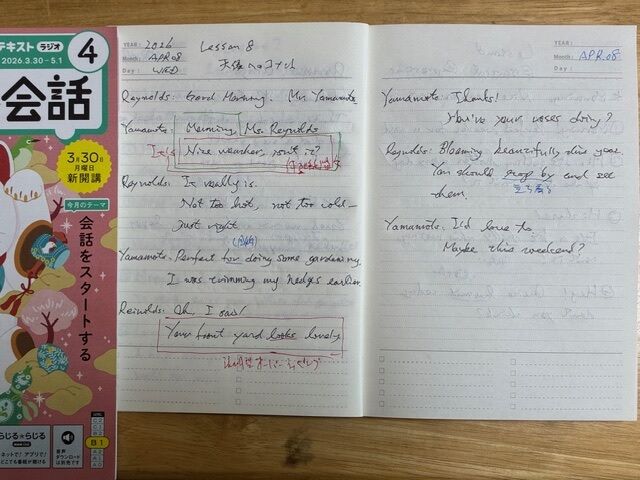 テキスト ラジオ 4
2026.3.30-5.1
会話
3月30日
月曜日
新開講
今月のテーマ
会話をスタートする
らじる★らじる
ネットで！アプリで！
どこでも番組が聴ける
音声
ダウンロード
は別売です
LEVEL
C2
C1
B2
B1
A2
A1
A0
YEAR: 2026 Lesson 8
Month: APR.08 天候へのコメント
Day: WED
Reynolds: Good Morning. Mr. Yamamoto
Yamamoto: Morning, Ms. Reynolds
It's Nice weather, isn't it?
Reynolds: It really is.
Not too hot, not too cold—
Just right.
Yamamoto: Perfect for doing some gardening.
I was trimming my hedges earlier.
Reinolds: Oh, I saw!
Your front yard looks lovely.
YEAR:
Month: APR.08
Day:
Yamamoto: Thanks!
How're your roses doing?
Reynolds: Blooming beautifully this year.
You should drop by and see
them. 立ち寄る
Yamamoto: I'd love to.
Maybe this weekend?